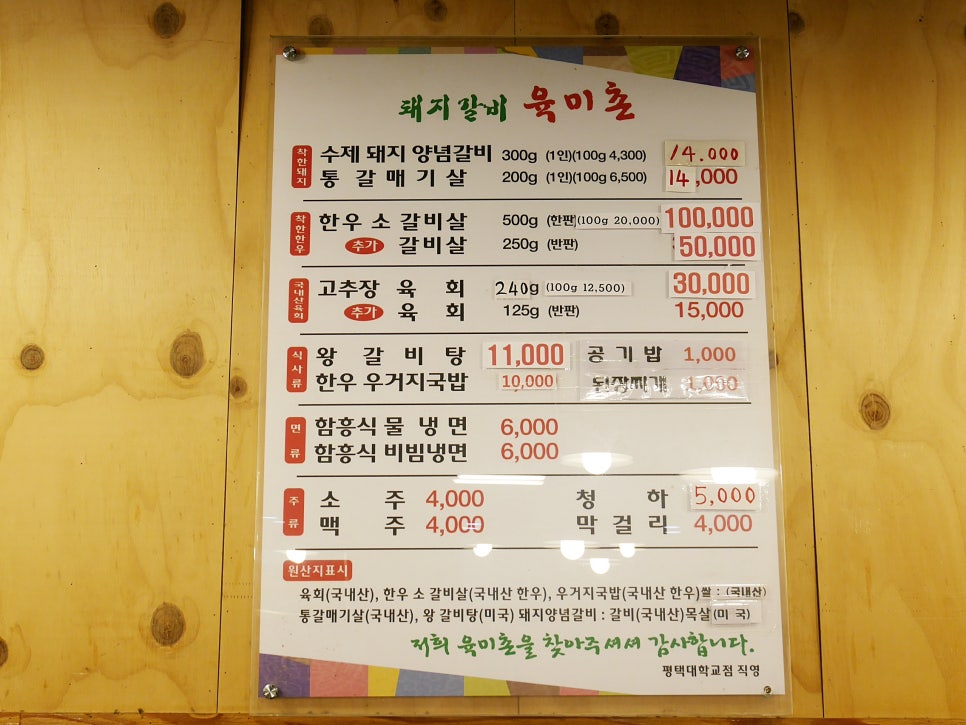 돼지갈비 육미촌
착한돼지
수제 돼지 양념갈비 300g (1인)(100g 4,300) 14.000
통 갈매기살 200g (1인)(100g 6,500) 14,000
착한한우
한우 소 갈비살 500g (한판)(100g 20,000) 100,000
추가 갈비살 250g (반판) 50,000
국내산육회
고추장 육 회 240g (100g 12,500) 30,000
추가 육 회 125g (반판) 15,000
식사류
왕 갈 비 탕 11,000 공 기 밥 1,000
한우 우거지국밥 10,000 된장찌개 1,000
면류
함흥식 물 냉 면 6,000
함흥식 비빔냉면 6,000
주류
소 주 4,000 청 하 5,000
맥 주 4,000 막 걸 리 4,000
원산지표시
육회(국내산), 한우 소 갈비살(국내산 한우), 우거지국밥(국내산 한우)쌀 : (국내산)
통갈매기살(국내산), 왕 갈비탕(미국) 돼지양념갈비 : 갈비(국내산)목살(미 국)
저희 육미촌을 찾아주셔서 감사합니다.
평택대학교점 직영